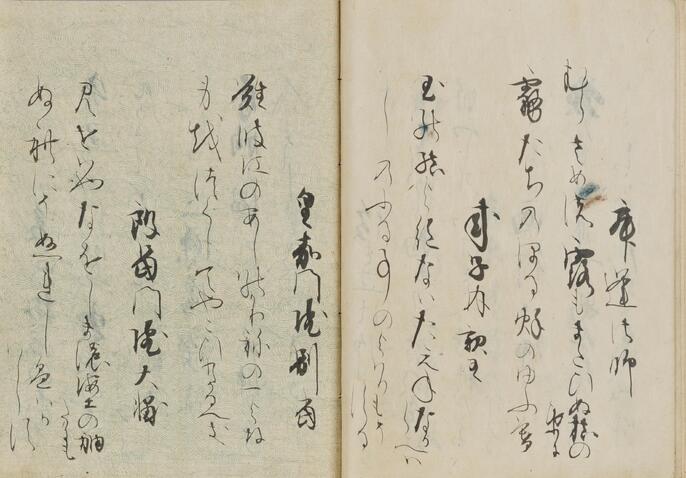 寂蓮法師
むらさめの露もまたひぬ槙の葉に
霧たちのほる秋のゆふ暮
式子内親王
玉の緒よ絶なはたえねなからへは
しのふる事のよはりもそする
皇嘉門院別当
難波江のあしのかりねの一よゆへ
身をつくしてやこひわたるへき
殷富門院大輔
見せはやなをしまの海士の袖たにも
ぬれにそぬれし色はかはらす